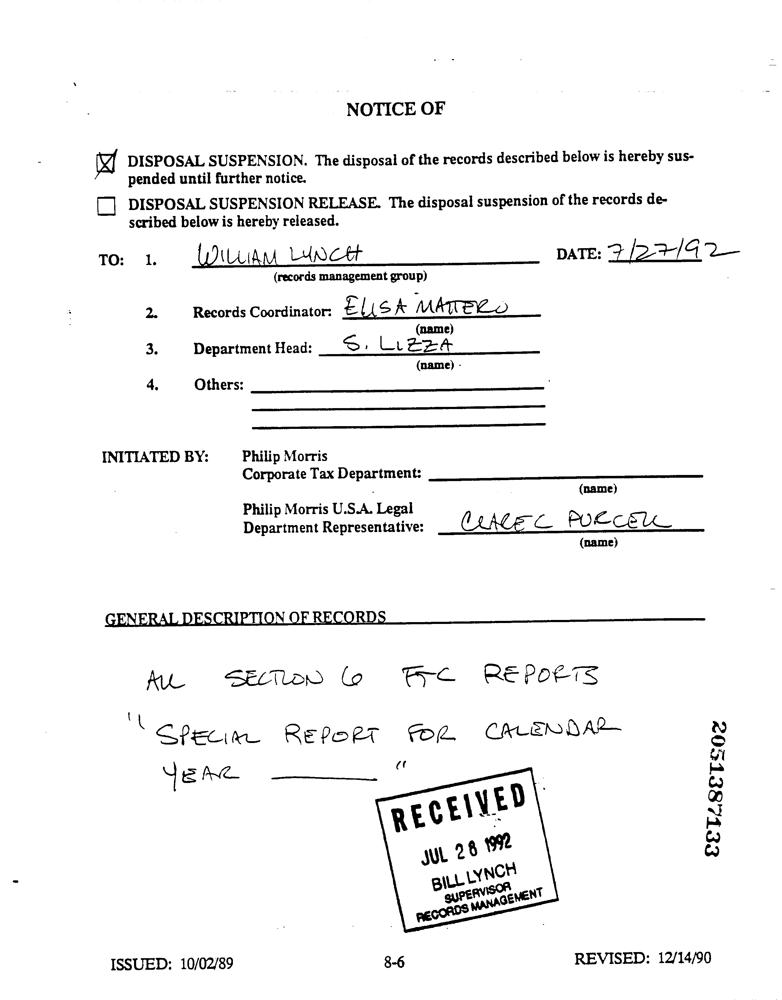 NOTICE OF
DISPOSAL SUSPENSION. The disposal of the records described below is hereby sus-
pended until further notice.
DISPOSAL SUSPENSION RELEASE. The disposal suspension of the records de-
scribed below is hereby released.
TO: 1. WILLIAM LYNCH DATE: 7/27/92
(records management group)
2. Records Coordinator: ELISA MATTERO
(name)
3. Department Head: S. LIZZA
(name)
4. Others:
INITIATED BY: Philip Morris
Corporate Tax Department:
(name)
Philip Morris U.S.A. Legal
Department Representative: CLARE C PURCELL
(name)
GENERAL DESCRIPTION OF RECORDS
ALL SECTION 6 FTC REPORTS
"SPECIAL REPORT FOR CALENDAR
YEAR ______"
RECEIVED
JUL 28 1992
BILL LYNCH
SUPERVISOR
RECORDS MANAGEMENT
2051387133
ISSUED: 10/02/89 8-6 REVISED: 12/14/90